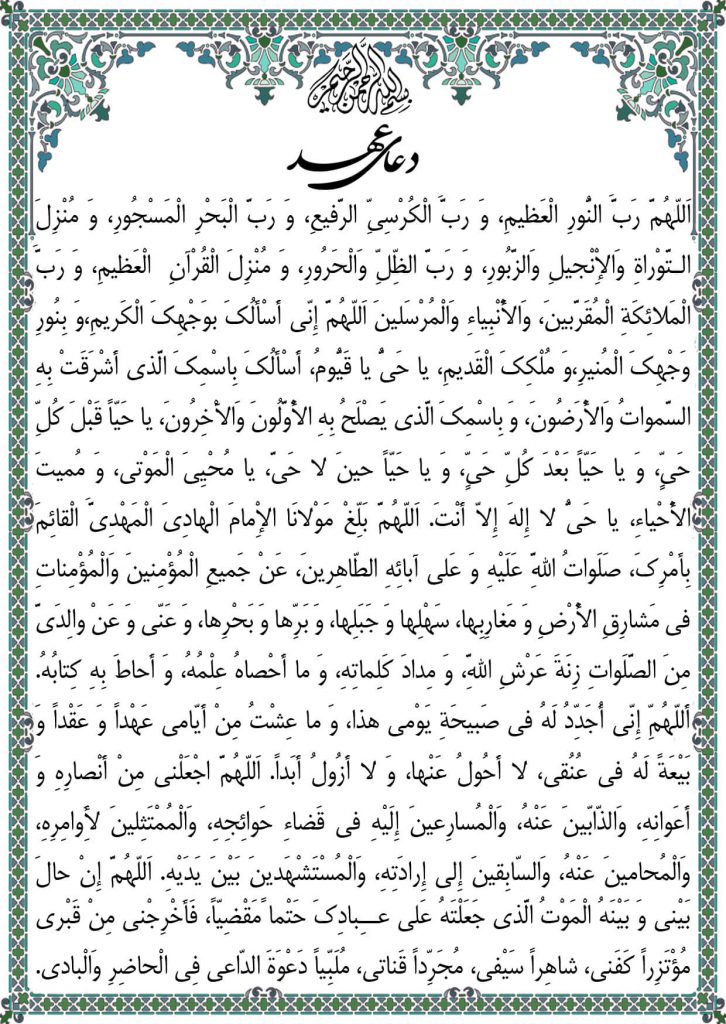 بسم الله الرحمن الرحیم
دعای عهد
اَللّهُمَّ رَبَّ النُّورِ الْعَظیمِ، وَ رَبَّ الْکُرْسِیِّ الرَّفیعِ، وَ رَبَّ الْبَحْرِ الْمَسْجُورِ، وَ مُنْزِلَ
التَّوْراةِ وَالإِنْجیلِ وَالزَّبُورِ، وَ رَبَّ الظِّلِّ وَالْحَرُورِ، وَ مُنْزِلَ الْقُرْآنِ الْعَظیمِ، وَ رَبَّ
الْمَلائِکَةِ الْمُقَرَّبینَ، وَالأَنْبِیاءِ وَالْمُرْسَلینَ اَللّهُمَّ إِنّی أسْألُکَ بوَجْهِکَ الْکَریمِ،وَ بِنُورِ
وَجْهِکَ الْمُنیرِ،وَ مُلْکِکَ الْقَدیمِ، یا حَیُّ یا قَیُّومُ، أسْألُکَ بِاسْمِکَ الَّذی أشْرَقَتْ بِهِ
السَّمواتُ وَالأَرَضُونَ، وَ بِاسْمِکَ الَّذی یَصْلَحُ بِهِ الأَوَّلُونَ وَالأَخِرُونَ، یا حَیّاً قَبْلَ کُلِّ
حَیٍّ، وَ یا حَیّاً بَعْدَ کُلِّ حَیٍّ، وَ یا حَیّاً حینَ لا حَیَّ، یا مُحْیِیَ الْمَوْتی، وَ مُمیتَ
الأَحْیاءِ، یا حَیُّ لا إِله إِلاّ أنْتَ. اَللّهُمَّ بَلِّغْ مَوْلانَا الإِمامَ الْهادِیَ الْمَهْدِیَّ الْقائِمَ
بِأمْرِکَ، صَلَواتُ اللهِّ عَلَیْهِ وَ عَلی آبائِهِ الطّاهِرینَ، عَنْ جَمیعِ الْمُؤْمِنینَ وَالْمُؤْمِناتِ
فی مَشارِقِ الأَرْضِ وَ مَغارِبِها، سَهْلِها وَ جَبَلِها، وَ بَرِّها وَ بَحْرِها، وَ عَنّی وَ عَنْ والِدَیَّ
مِنَ الصَّلَواتِ زِنَةَ عَرْشِ اللهِّ، وَ مِدادَ کَلِماتِهِ، وَ ما أحْصاهُ عِلْمُهُ، وَ أحاطَ بِهِ کِتابُهُ.
أللّهُمِّ إِنّی أُجَدِّدُ لَهُ فی صَبیحَةِ یَوْمی هذا، وَ ما عِشْتُ مِنْ أیّامی عَهْداً وَ عَقْداً وَ
بَیْعَةً لَهُ فی عُنُقی، لا أحُولُ عَنْها، وَ لا أزُولُ أبَداً. اَللّهُمَّ اجْعَلْنی مِنْ أنْصارِهِ وَ
أعَوانِهِ، وَالذّابّینَ عَنْهُ، وَالْمُسارِعینَ إِلَیْهِ فی قَضاءِ حَوائِجِهِ، وَالْمُمْتَثِلینَ لأَوامِرِهِ،
وَالْمُحامینَ عَنْهُ، وَالسّابِقینَ إِلی إِرادَتِهِ، وَالْمُسْتَشْهَدینَ بَیْنَ یَدَیْهِ. اَللّهُمَّ إِنْ حالَ
بَیْنی وَ بَیْنَهُ الْمَوْتُ الَّذی جَعَلْتَهُ عَلی عِبادِکَ حَتْماً مَقْضِیّاً، فَأخْرِجْنی مِنْ قَبْری
مُؤْتَزِراً کَفَنی، شاهِراً سَیْفی، مُجَرِّداً قَناتی، مُلَبِّیاً دَعْوَةَ الدّاعی فِی الْحاضِرِ وَالْبادی.